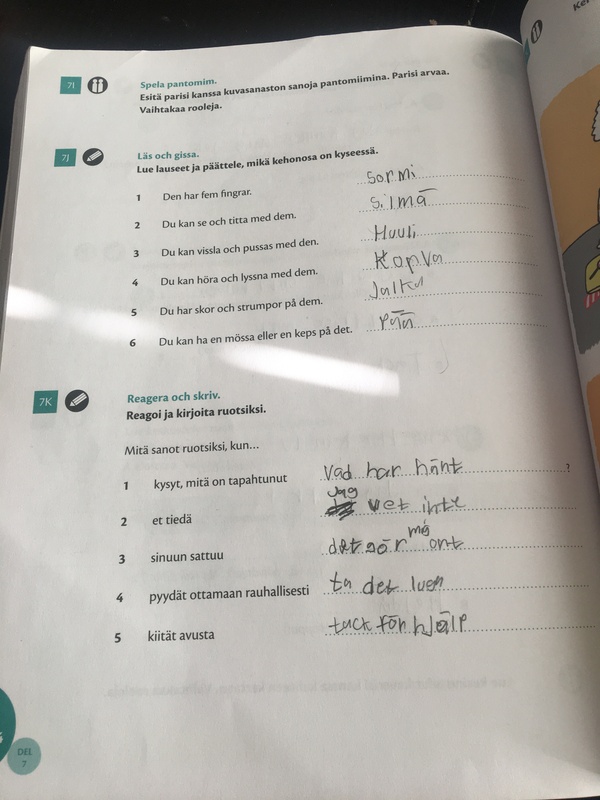 7I
Spela pantomim.
Esitä parisi kanssa kuvasanaston sanoja pantomiimina. Parisi arvaa.
Vaihtakaa rooleja.
7J
Läs och gissa.
Lue lauseet ja päättele, mikä kehonosa on kyseessä.
1 Den har fem fingrar. Sormi
2 Du kan se och titta med dem. Silmä
3 Du kan vissla och pussas med den. Huuli
4 Du kan höra och lyssna med dem. Korva
5 Du har skor och strumpor på dem. Jalka
6 Du kan ha en mössa eller en keps på det. Pää
7K
Reagera och skriv.
Reagoi ja kirjoita ruotsiksi.
Mitä sanot ruotsiksi, kun...
1 kysyt, mitä on tapahtunut Vad har hänt ?
jag
2 et tiedä vet inte
3 sinuun sattuu det gör ont
4 pyydät ottamaan rauhallisesti ta det luen
5 kiität avusta tack för hjälp
DEL
7